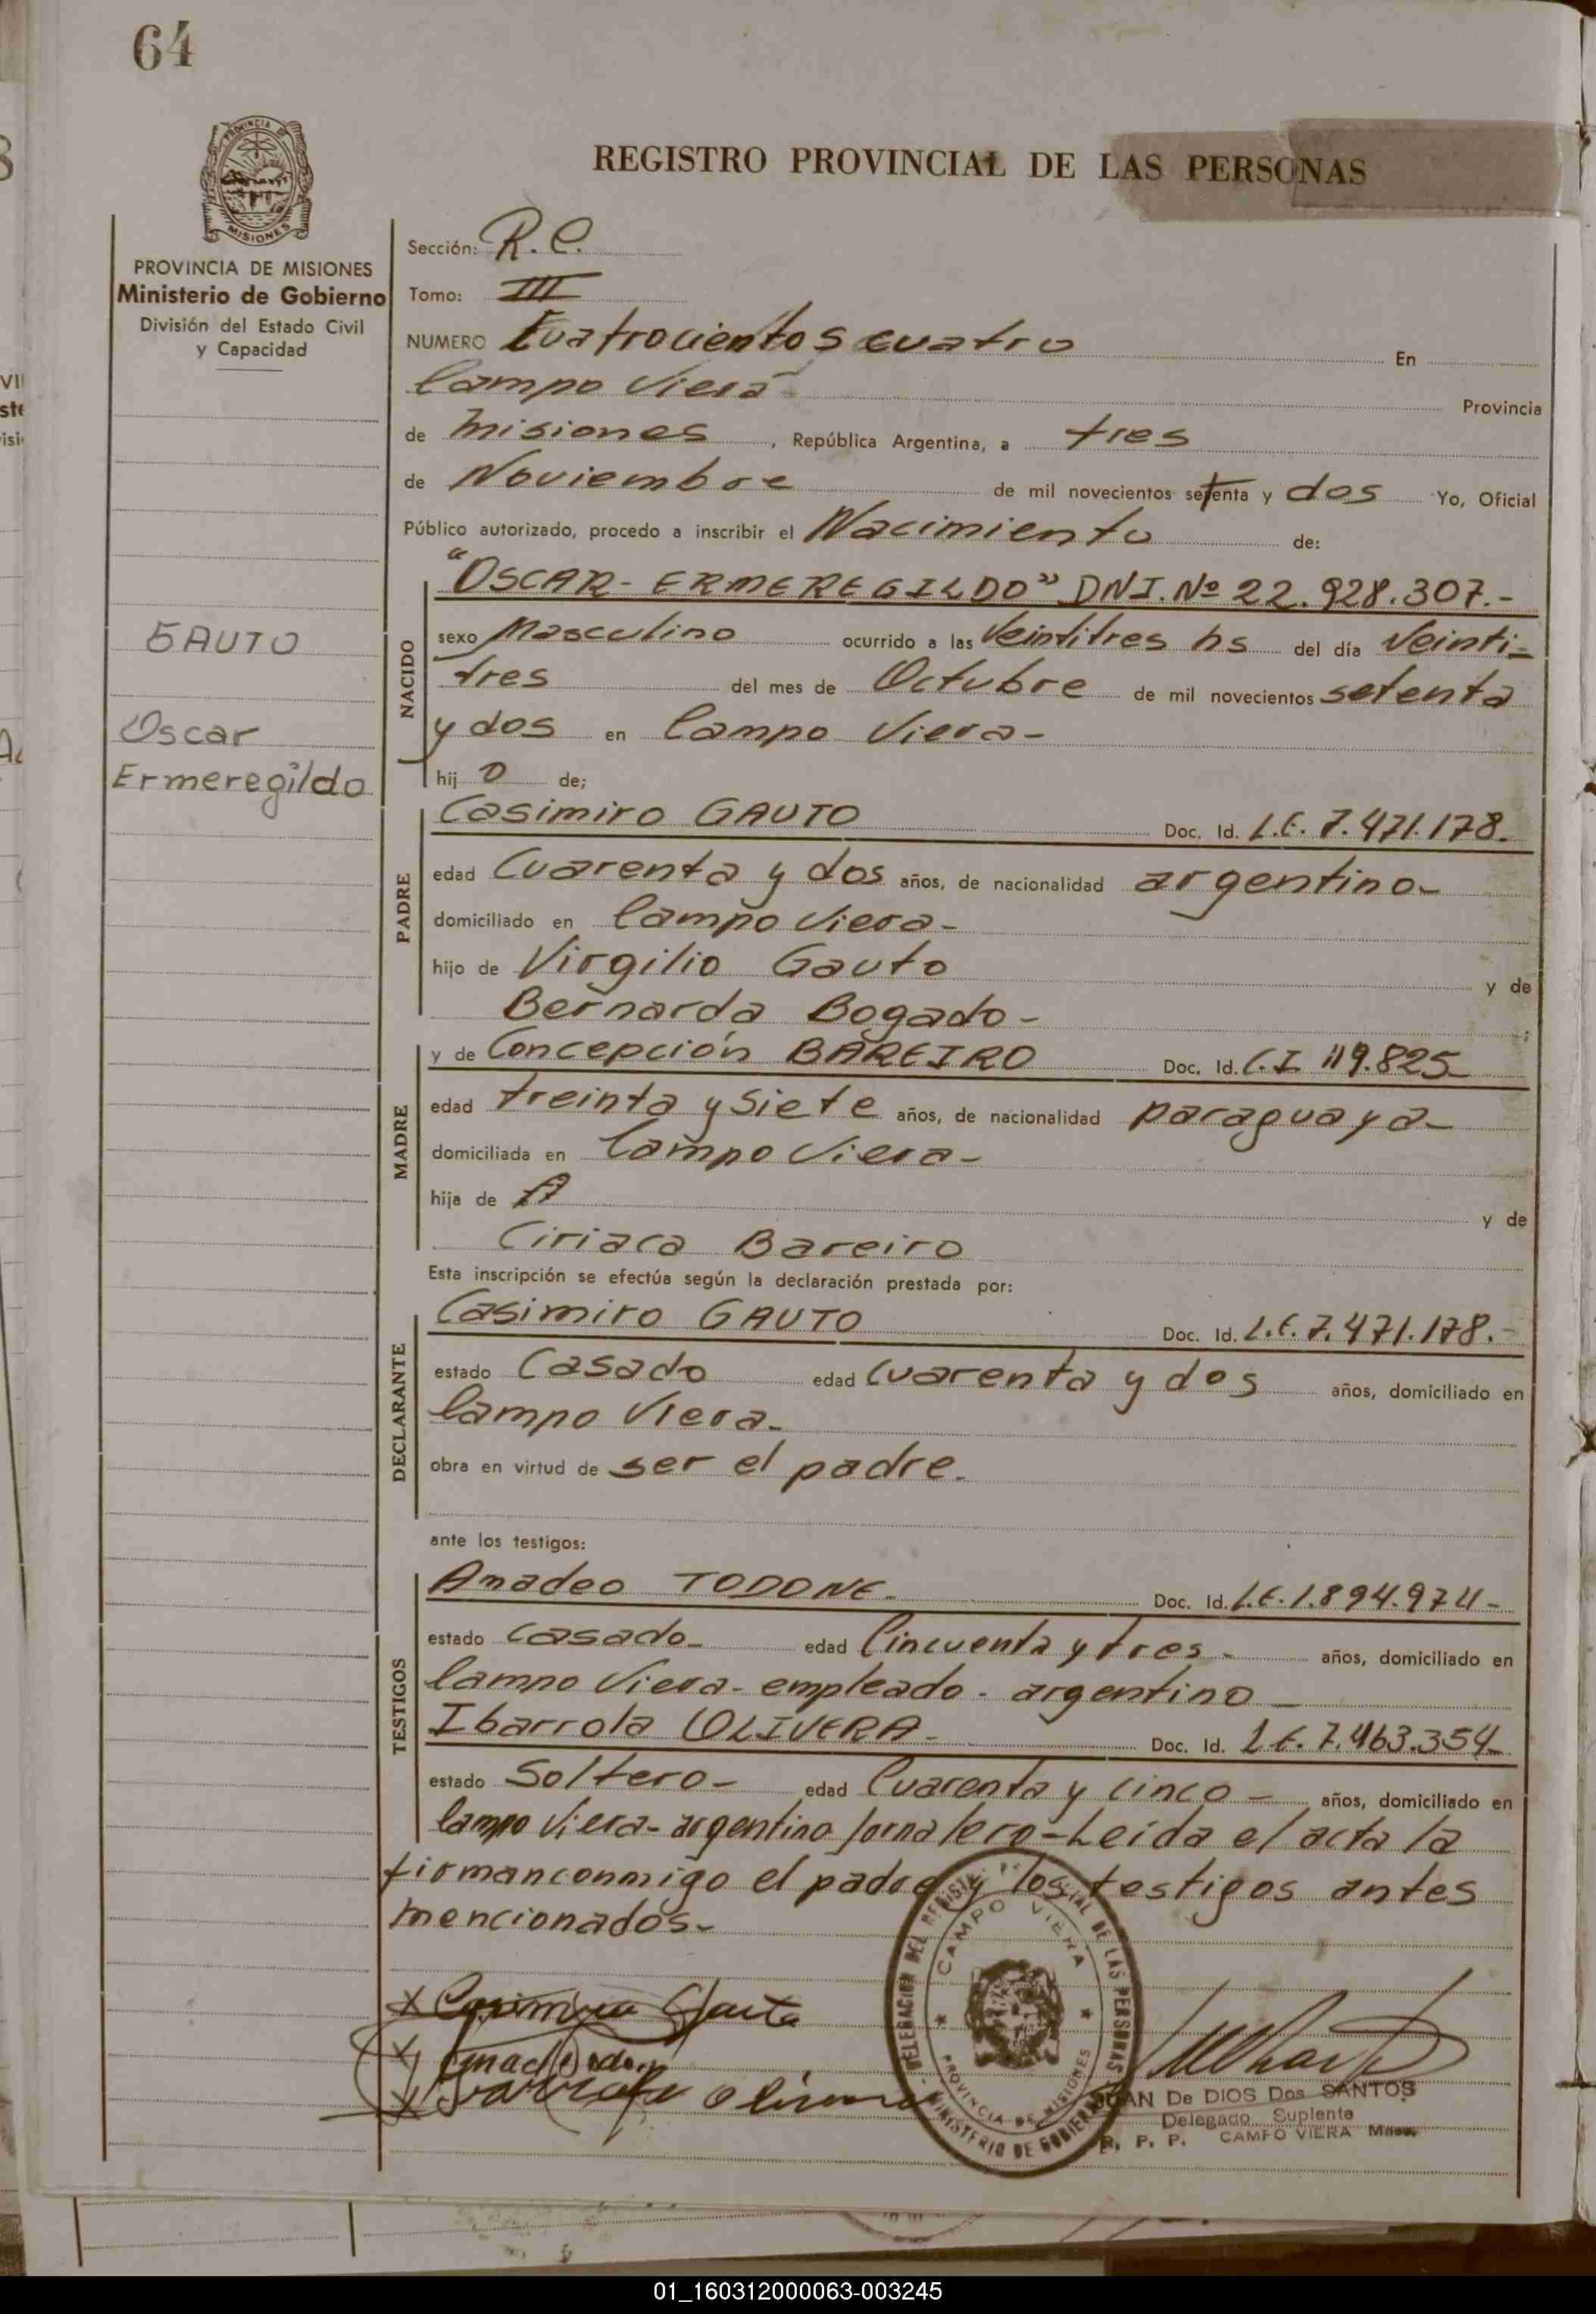 64
REGISTRO PROVINCIAL DE LAS PERSONAS
PROVINCIA DE
MISIONES
PROVINCIA DE MISIONES
Ministerio de Gobierno
División del Estado Civil
y Capacidad
GAUTO
Oscar
Ermeregildo
Sección: R.C.
Tomo: III
NUMERO Cuatrocientos cuatro En
Campo Viera Provincia
de Misiones, República Argentina, a tres
de Noviembre de mil novecientos setenta y dos Yo, Oficial
Público autorizado, procedo a inscribir el Nacimiento de:
NACIDO
"OSCAR- ERMEREGILDO" DNI. Nº 22.928.307.-
sexo Masculino ocurrido a las Veintitres hs del día Veinti-
tres del mes de Octubre de mil novecientos setenta
y dos en Campo Viera-
hij o de;
PADRE
Casimiro GAUTO Doc. Id. L.E. 7.471.178.
edad Cuarenta y dos años, de nacionalidad argentino-
domiciliado en Campo Viera-
hijo de Virgilio Gauto y de
Bernarda Bogado-;
MADRE
y de Concepción BAREIRO Doc. Id. C.I. 119.825-
edad treinta y siete años, de nacionalidad paraguaya-
domiciliada en Campo Viera-
hija de y de
Ciriaca Bareiro
Esta inscripción se efectúa según la declaración prestada por:
DECLARANTE
Casimiro GAUTO Doc. Id. L.E. 7.471.178.-
estado Casado edad Cuarenta y dos años, domiciliado en
Campo Viera-
obra en virtud de ser el padre.
ante los testigos:
TESTIGOS
Amadeo TODONE- Doc. Id. L.E. 1.894.974-
estado Casado- edad Cincuenta y tres- años, domiciliado en
Campo Viera- empleado- argentino-
Ibarrola OLIVERA- Doc. Id. L.E. 7.463.354-
estado Soltero- edad Cuarenta y cinco- años, domiciliado en
Campo Viera- argentino jornalero-Leida el acta la
firmanconmigo el padre y los testigos antes
mencionados-
X Casimiro Gauto
X
X Ibarrola Olivera
DELEGACION DEL REGISTRO PROVINCIAL DE LAS PERSONAS
CAMPO VIERA
PROVINCIA DE MISIONES
MINISTERIO DE GOBIERNO
JUAN De DIOS Dos SANTOS
Delegado Suplente
R. P. P. CAMPO VIERA Mnes.
01_160312000063-003245